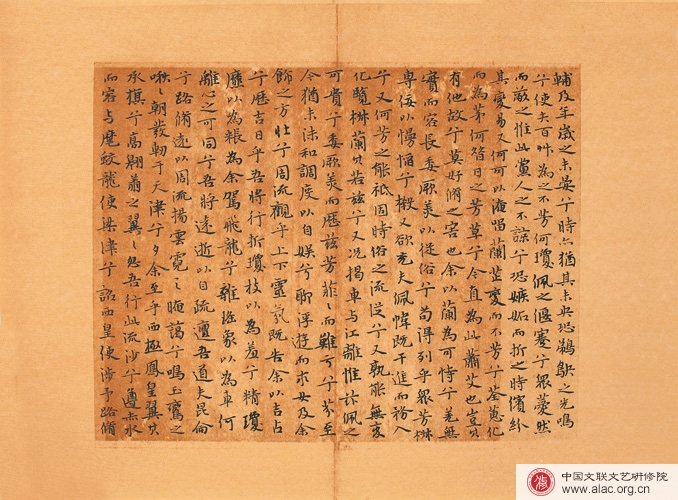 輔及年歲之未晏兮時亦猶其未央恐鵜鴃之先鳴
兮使夫百艸為之不芳何瓊佩之偃蹇兮衆薆然
而蔽之惟此黨人之不諒兮恐嫉妬而折之時繽紛
其變易又何可以淹留蘭芷變而不芳兮荃蕙化
而為茅何昔日之芳草兮今直為此蕭艾也豈其
有他故兮莫好脩之害也余以蘭為可恃兮羌無
實而容長委厥美以從俗兮苟得列乎衆芳椒
專佞以慢慆兮樧又欲充夫佩幃既干進而務入
兮又何芳之能祗固時俗之流從兮又孰能無變
化覽椒蘭其若茲兮又況揭車與江離惟茲佩之
可貴兮委厥美而歷茲芳菲〻而難虧兮芬至
今猶未沬和調度以自娛兮聊浮游而求女及余
飾之方壯兮周流觀乎上下靈氛既告余以吉占
兮歷吉日乎吾將行折瓊枝以為羞兮精瓊
爢以為粻為余駕飛龍兮雜瑤象以為車何
離心之可同兮吾將遠逝以自疏邅吾道夫昆侖
兮路脩遠以周流揚雲霓之晻藹兮鳴玉鸞之
啾〻朝發軔于天津兮夕余至乎西極鳳皇翼其
承旂兮高翱翔之翼〻忽吾行此流沙兮遵赤水
而容與麾蛟龍使梁津兮詔西皇使涉予路脩
中国文联文艺研修院
www.alac.org.cn